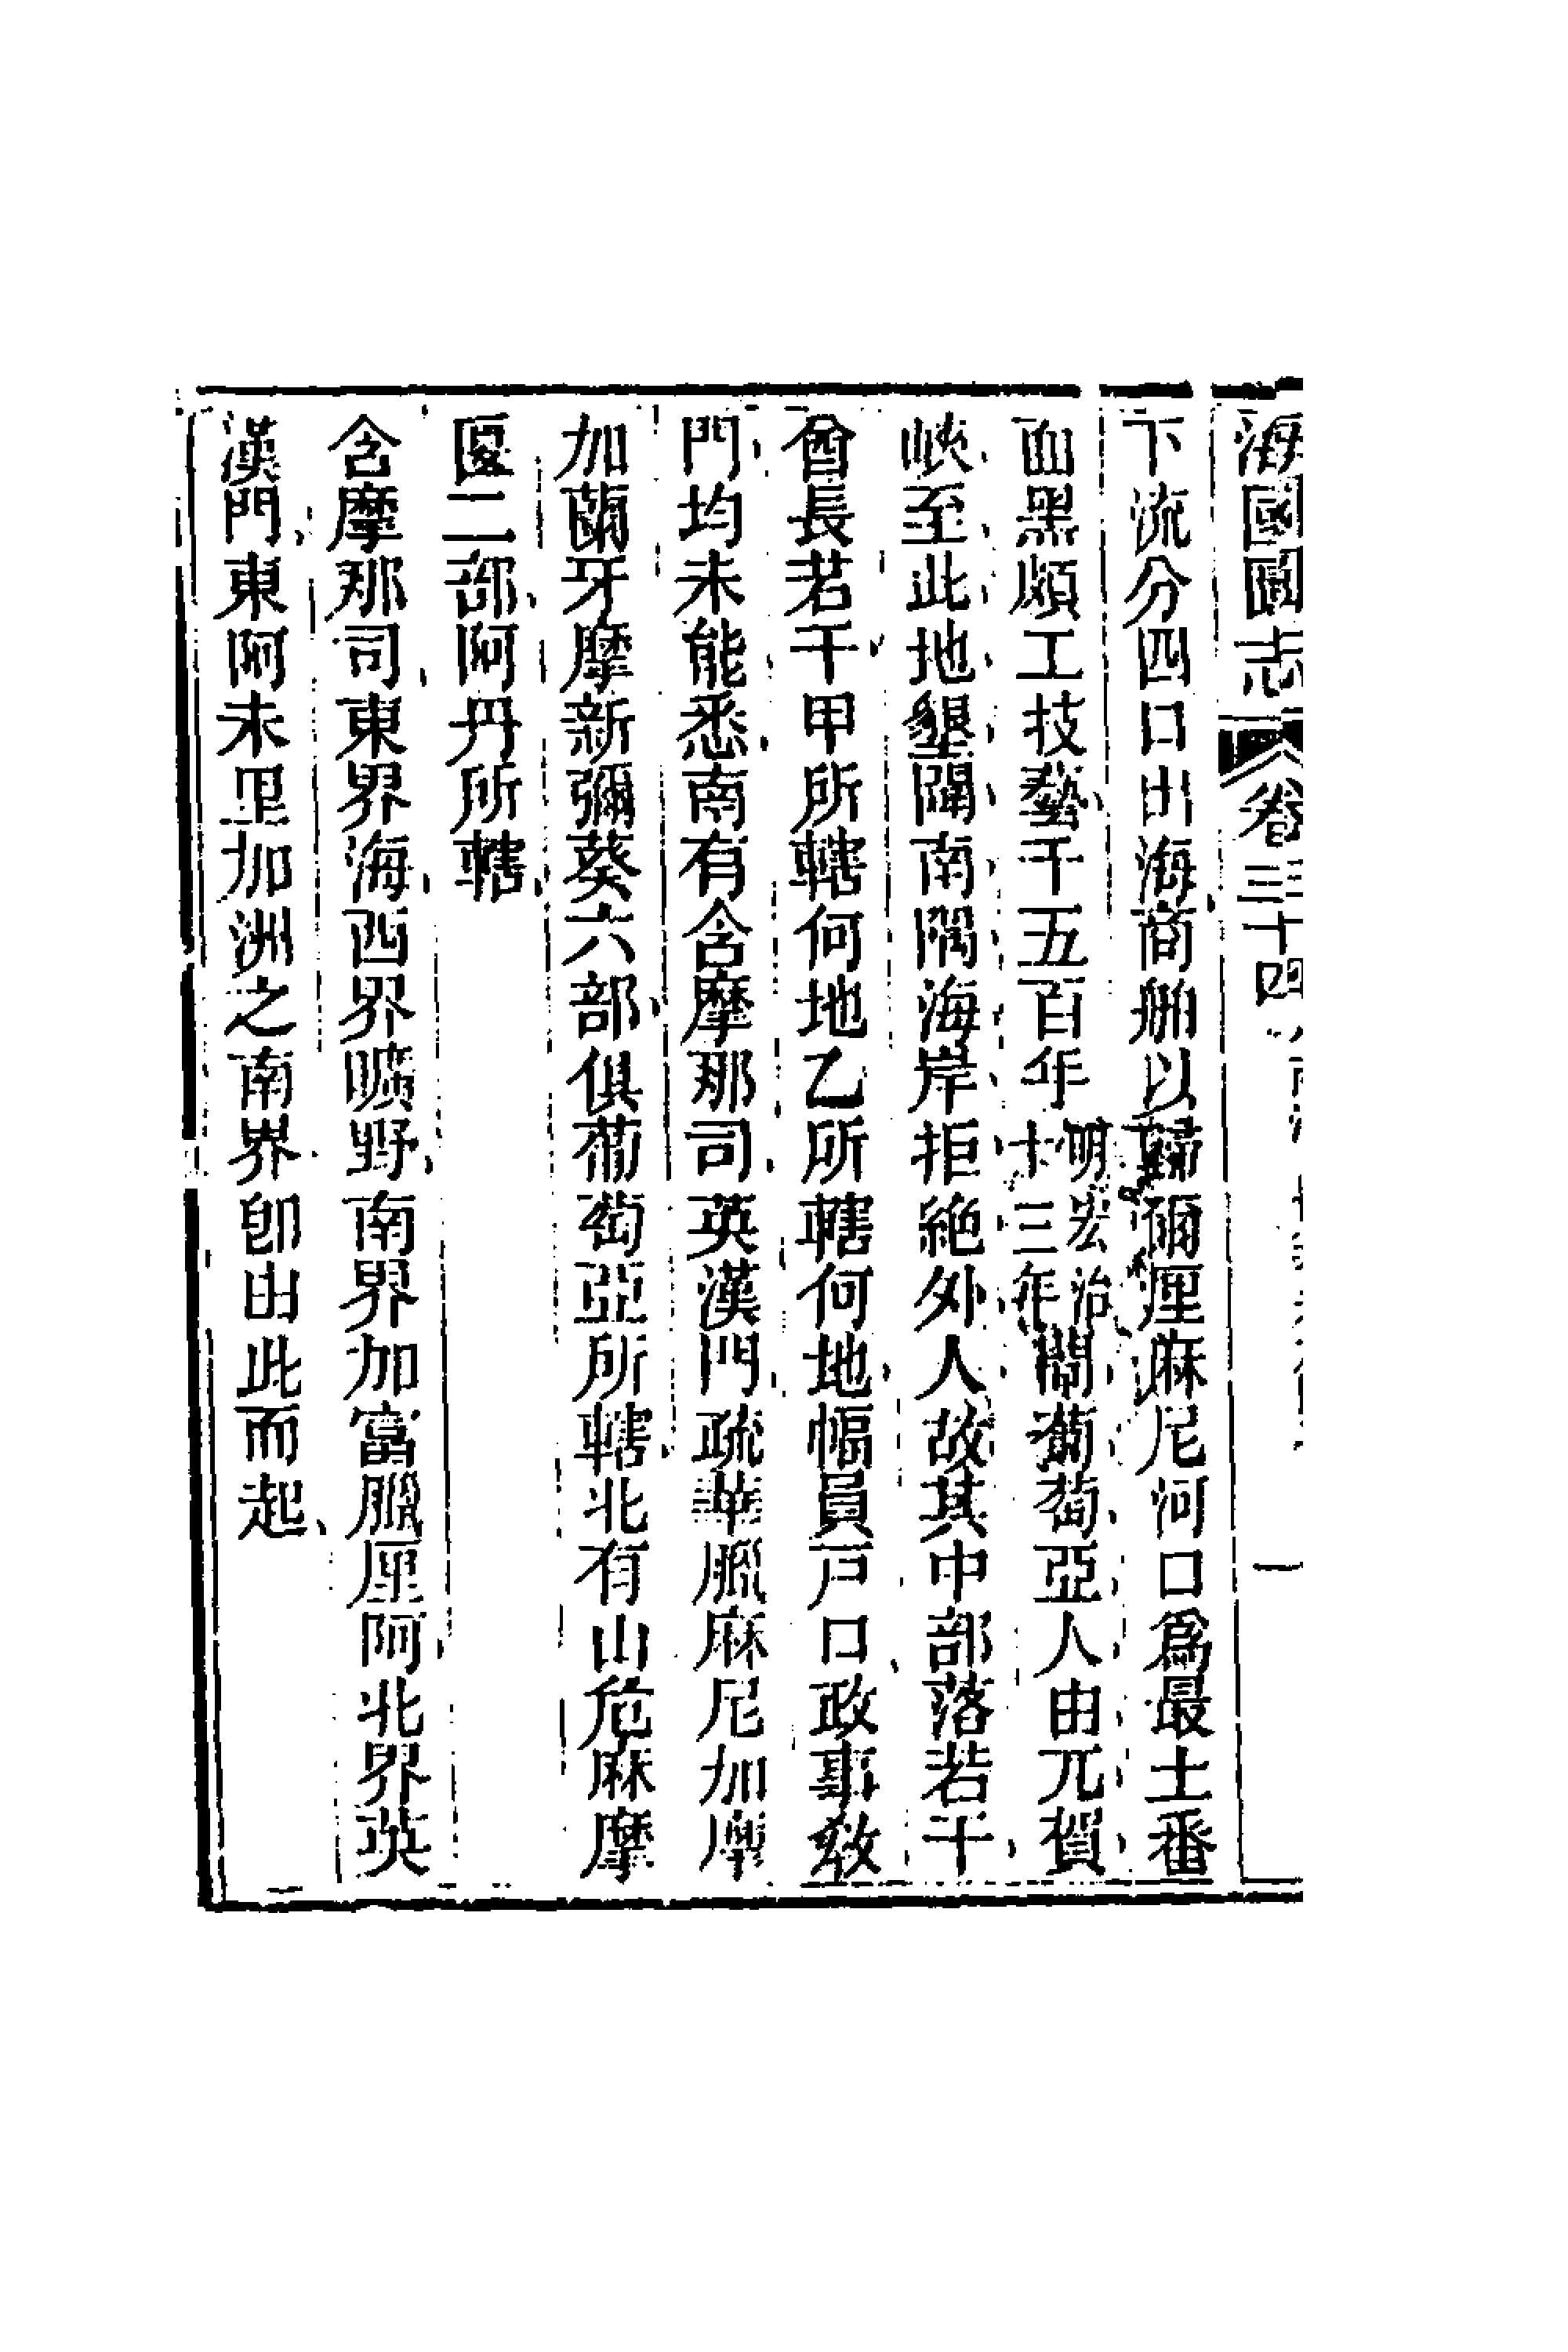 海國圖志 卷三十四 一
下流分四口出海商舶以歸爾厘麻尼河口爲最土番
面黑頗工技藝千五百年明宏治十三年間葡萄亞人由兀賀
峽至此地墾闢南隅海岸拒絶外人故其中部落若干
酋長若干甲所轄何地乙所轄何地幅員戸口政事教
門均未能悉南有含摩那司英漢門疏華臘麻尼加摩
加蘭牙摩新彌葵六部俱葡萄亞所轄北有山危麻摩
匽二部阿丹所轄
含摩那司東界海西界曠野南界加富臘厘阿北界英
漢門東阿未里加洲之南界卽由此而起